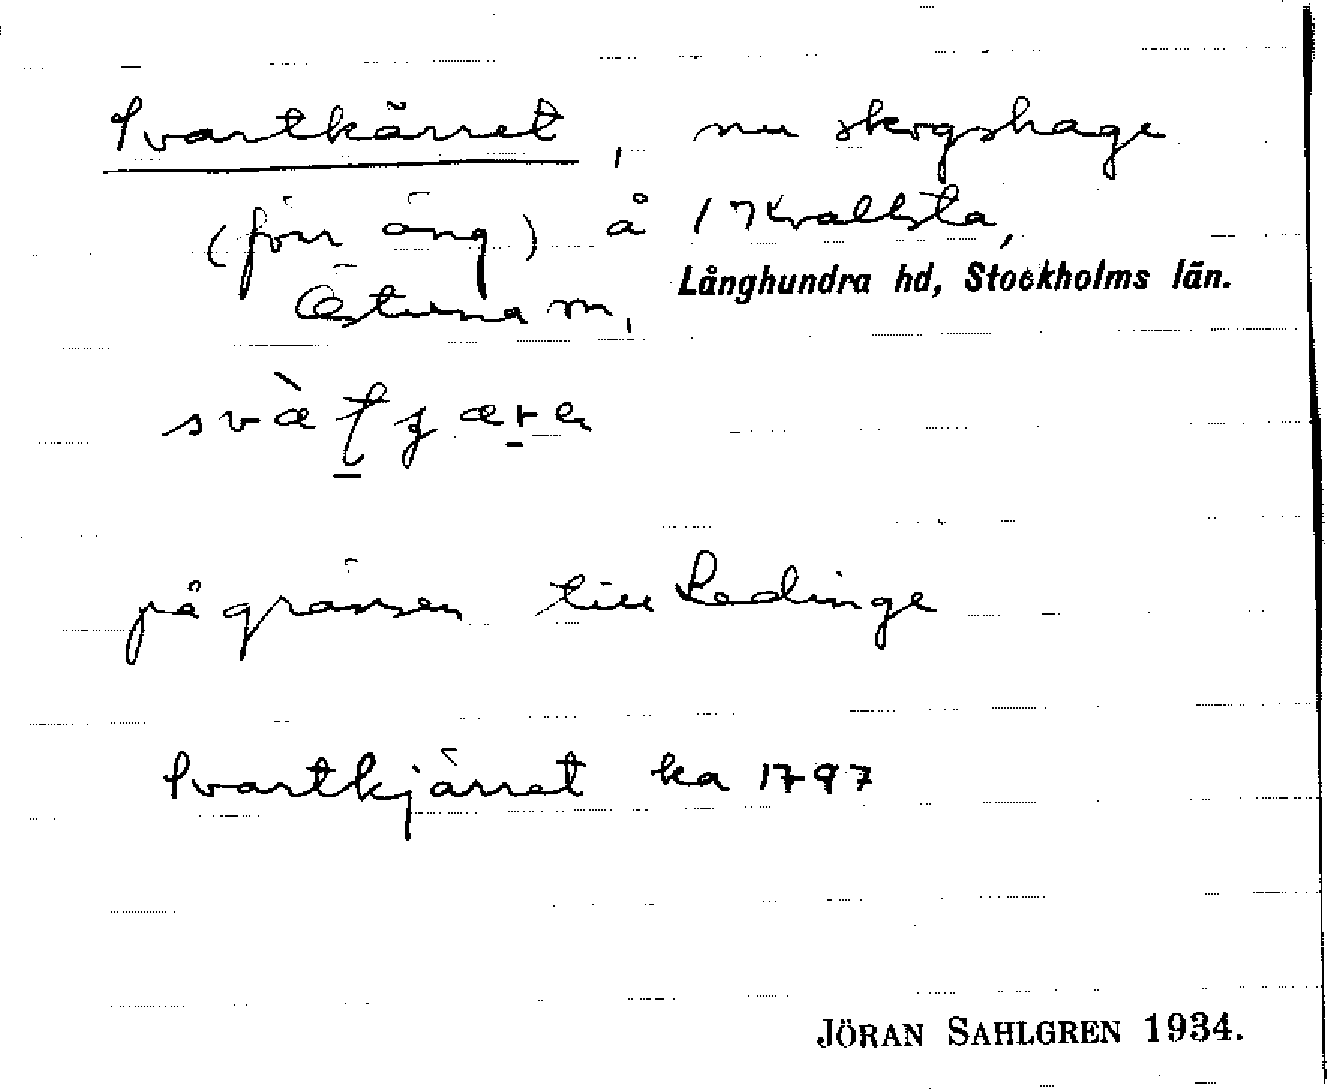 Svartkärret, nu skogshage
(förr äng) å 17 Kvallsta,
Östuna sn, Långhundra hd, Stockholms län.
på gränsen till Ledinge
Svartkjärret ka 1797
JÖRAN SAHLGREN 1934.